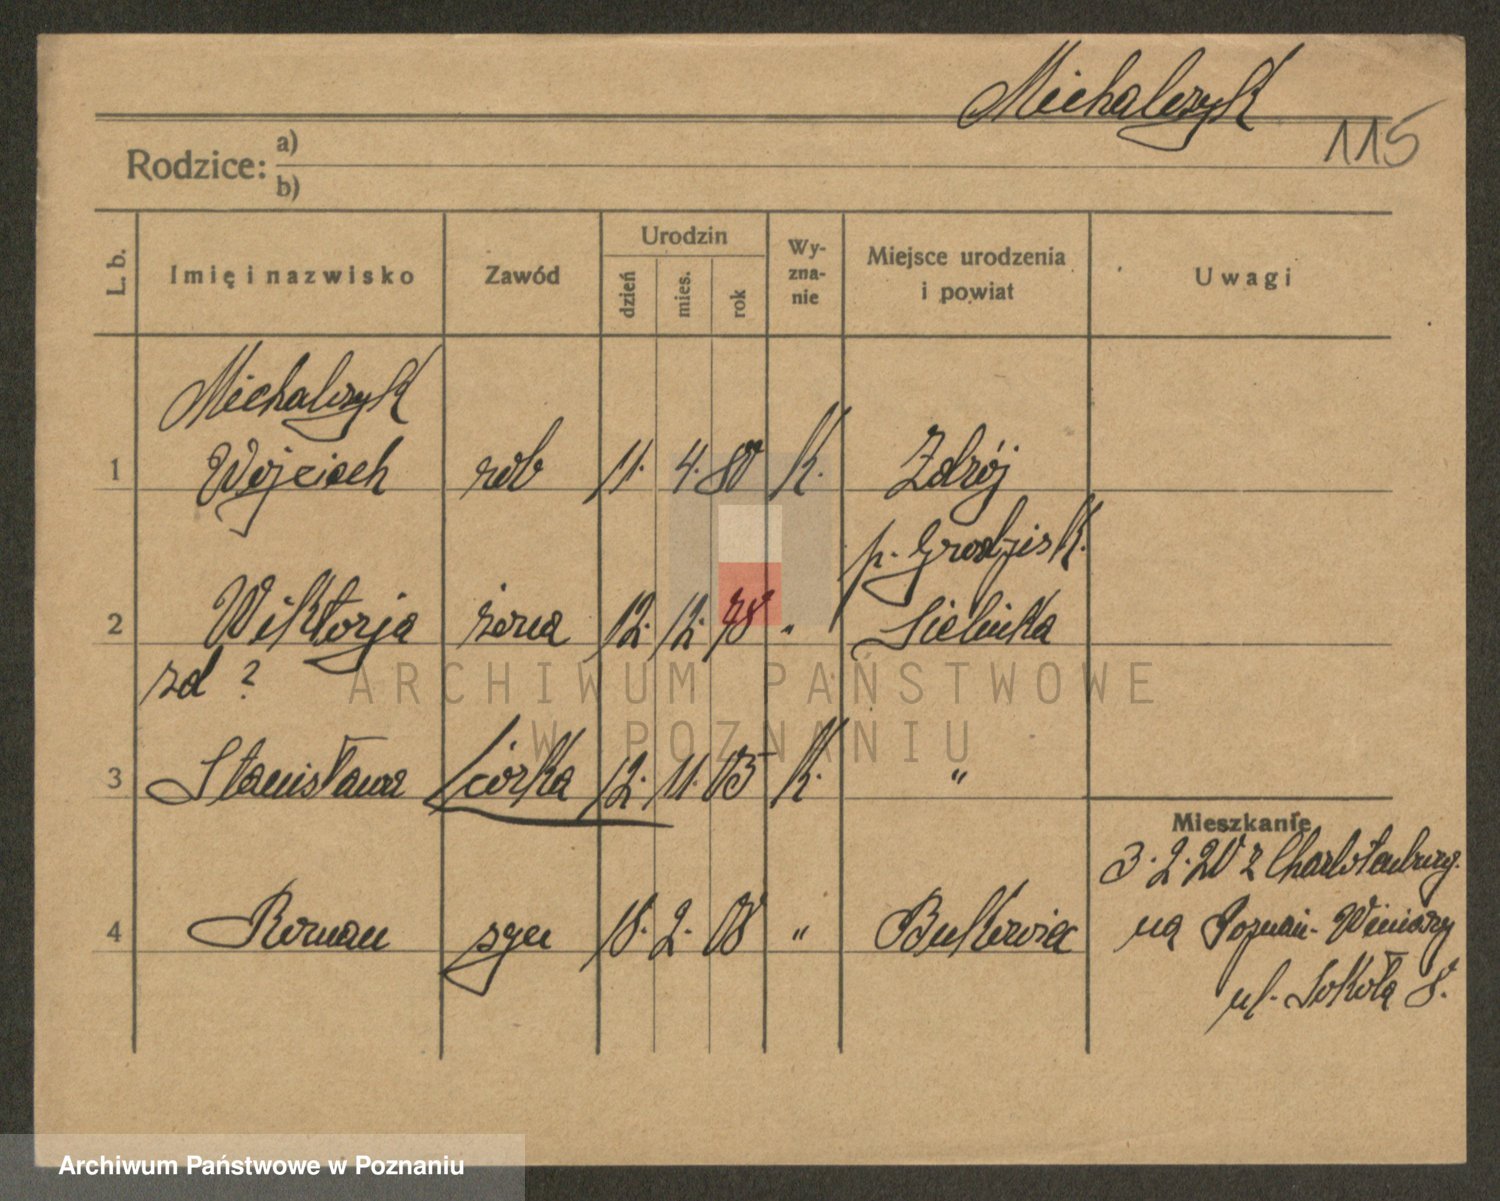 Michalczyk
115
Rodzice: a)
b)
L. b. Imię i nazwisko Zawód Urodzin dzień mies. rok Wy-zna-nie Miejsce urodzenia i powiat Uwagi
Michalczyk
1 Wojciech rob 11. 4. 80 K. Zdrój
p. Grodzisk.
2 Wiktorja żona 12. 12. 78 „ Sielinka
zd ?
3 Stanisława córka 12. 11. 05 K. „
Mieszkanie
3.2.20 z Charlotenburg.
4 Roman syn 18. 2. 08 „ na Poznań-Winiary
ul. Sokoła 8.
ARCHIWUM PAŃSTWOWE
W POZNANIU
Archiwum Państwowe w Poznaniu